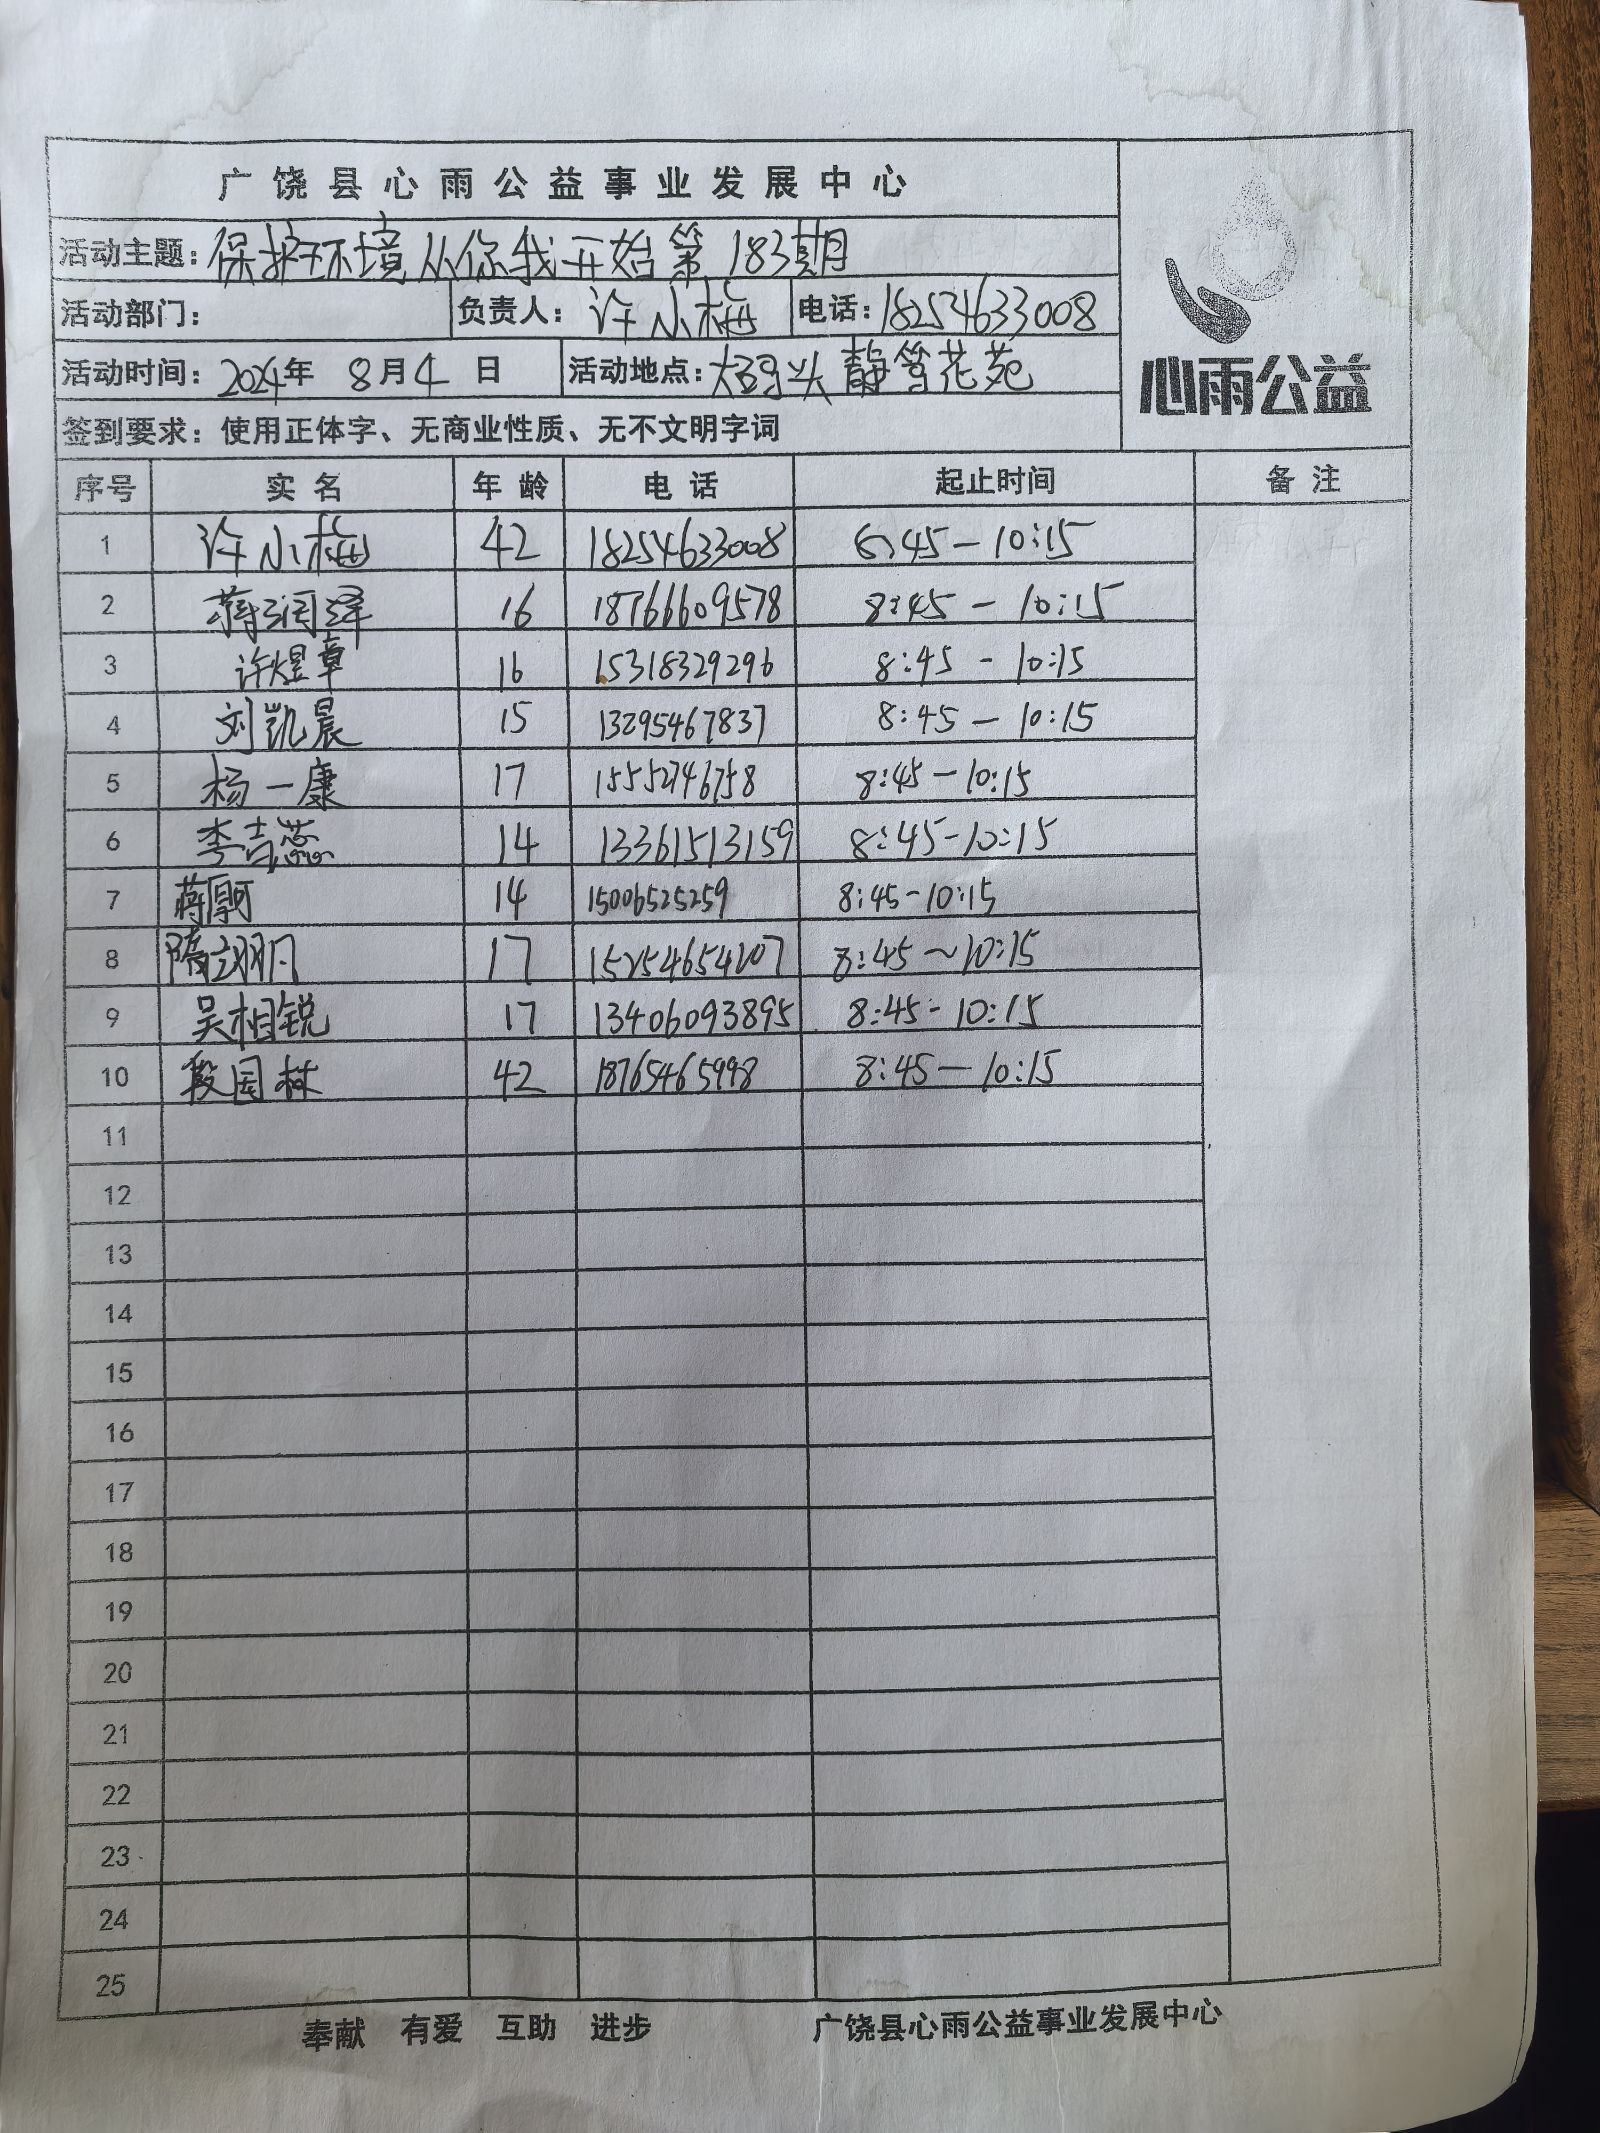 广饶县心雨公益事业发展中心
活动主题：保护环境从你我开始第183期
活动部门： 负责人：许小梅 电话：18254633008
活动时间：2024年 8月4日 活动地点：大码头静等花苑
心雨公益
签到要求：使用正体字、无商业性质、无不文明字词
序号 实名 年龄 电话 起止时间 备注
1 许小梅 42 18254633008 6:45-10:15
2 蒋润泽 16 18766609578 8:45-10:15
3 许煜章 16 15318329296 8:45-10:15
4 刘凯晨 15 13295467837 8:45-10:15
5 杨一康 17 15552746758 8:45-10:15
6 李吉蕊 14 13361513159 8:45-10:15
7 蒋 14 15006525259 8:45-10:15
8 隋翊凡 17 8:45~10:15
9 吴相锐 17 13406093895 8:45-10:15
10 段园林 42 18765465998 8:45-10:15
11
12
13
14
15
16
17
18
19
20
21
22
23
24
25
奉献 有爱 互助 进步 广饶县心雨公益事业发展中心